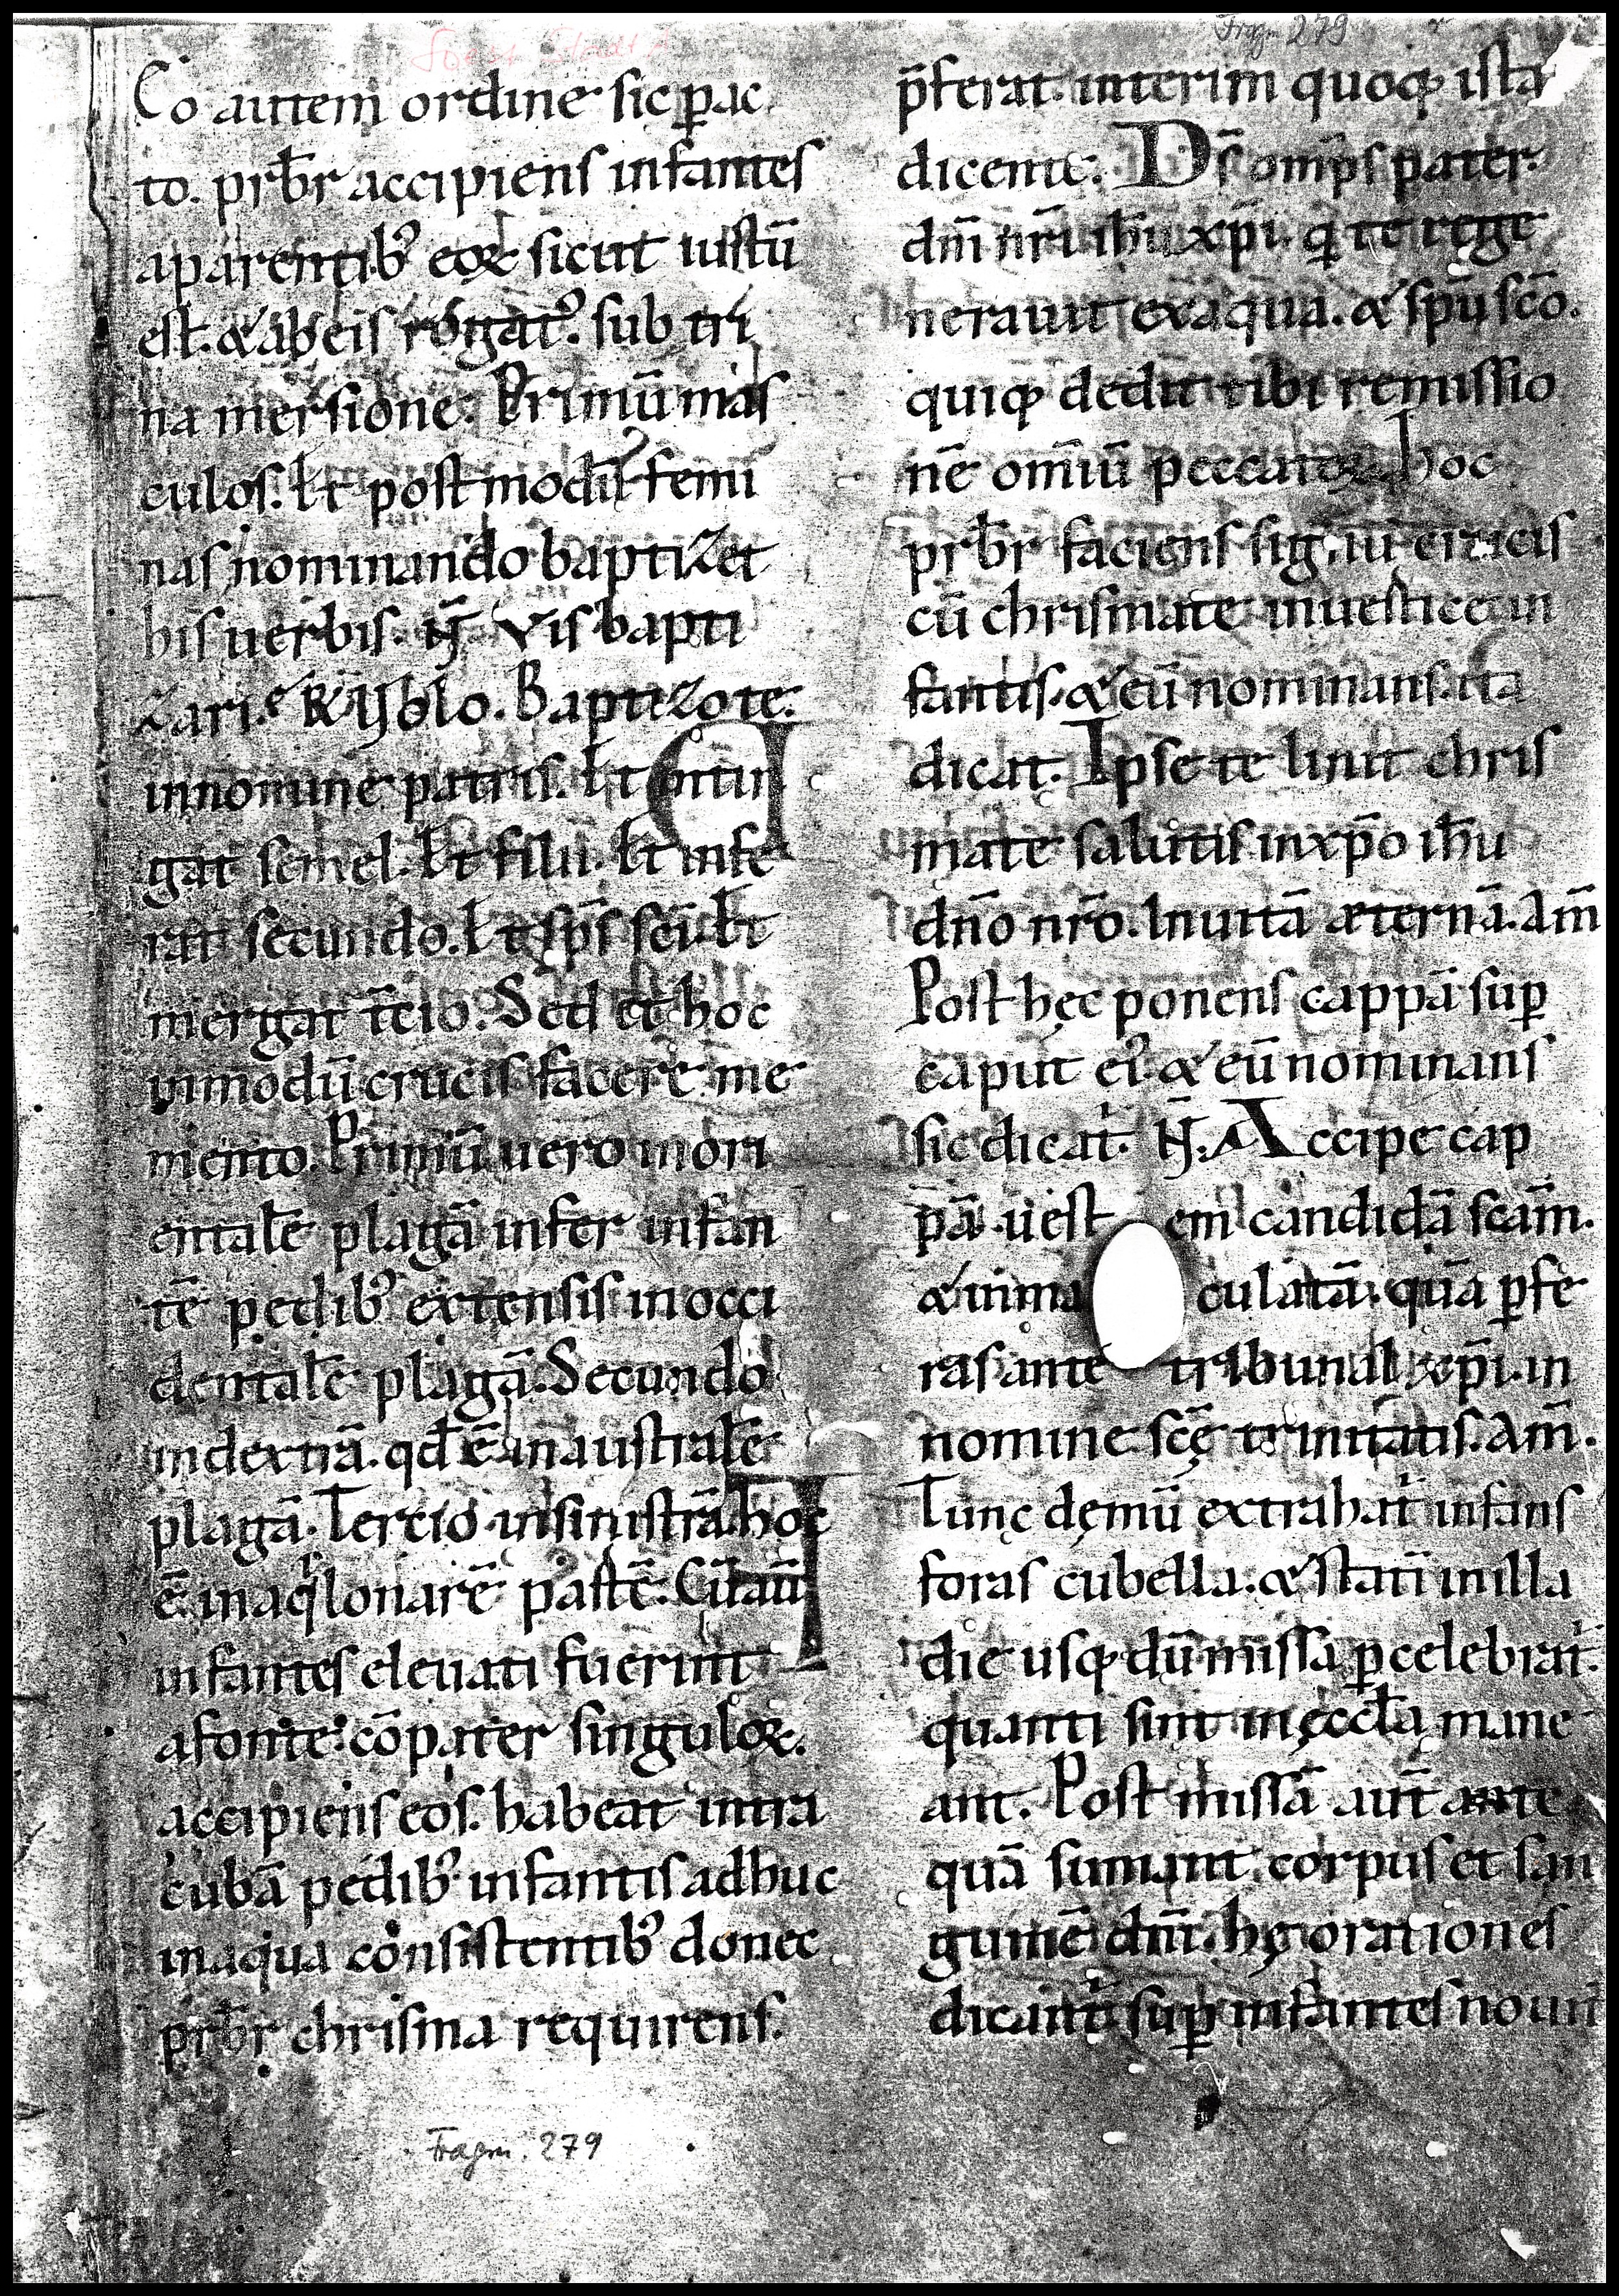 Soest Stadt A
Fragm 279
Eo autem ordine sic pac
to. prb̄r accipiens infantes
aparentibꝰ eoꝝ sicut iustū
est. & ab eis rogatꝰ. sub tri
na mersione. Primū mas
culos. Et post modū femi
nas nominando baptizet
his uerbis. N̄ Vis bapti
zari. R̄ Volo. Baptizo te.
innomine patris. Et tin
gat semel. Et filii. Et infe
rat secundo. Et sp̄s sc̄i. Et
mergat t̄cio. Sed et hoc
inmodū crucis facere me
mento. Primū uero in ori
entalē plagā infer infan
tē pedibꝰ extensis in occi
dentalē plagā. Secundo
indextrā. qd ē in australē
plagā. Tercio. insinistrā. hoc
ē. in aqͥlonarē pastē. Cū au̅
infantes eleuati fuerint
afonte. cōpater singuloꝝ.
accipiens eos. habeat intra
cubā pedibꝰ infantis adhuc
inaqua consistentibꝰ donec
prb̄r chrisma requirens.
p̄ferat. interim quoqꝫ ista
dicente. Ds̄ omp̄s pater.
dn̄i nr̄i ih̄u xp̄i. q̇ te rege
nerauit ex aqua. & sp̄u scō.
quiqꝫ dedit tibi remissio
nē om̄iū peccatoꝝ hoc
prb̄r faciens signū crucis
cū chrismate inuertice in
fantis. & eū nominans. ita
dicat. Ipse te linit chris
mate salutis inxp̄o ih̄u
dn̄o nr̄o. Inuitā æternā. Am̄
Post hęc ponens cappā sup̱
caput eiꝰ. & eū nominans
sic dicat. N̄. Accipe cap
pā. uestem candidā scām̄.
& inmaculatā. quā p̱fe
ras ante tribunal xp̄i. in
nomine scę̄ trinitatis. Am̄.
Tunc dęmū extrahat᷑ infans
foras cubella. & statī in illa
die usqꝫ dū missa p̱celebrat᷑.
quanti sint in ęccl̄a mane
ant. Post missā aut̄ ante
quā sumant. corpus et san
guinē dn̄i. hę orationes
dicant᷑ sup̱ infantes noui
Fragm. 279